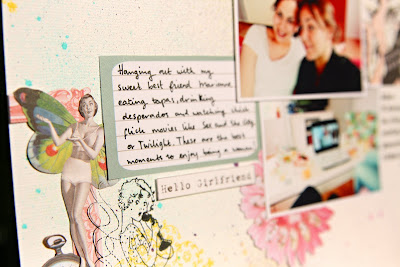 Hanging out with my
sweet best friend Marianne
eating tapas, drinking
desperados and watching chick
flick movies like Sex and the City
or Twilight. These are the best
moments to enjoy being a woman
Hello Girlfriend